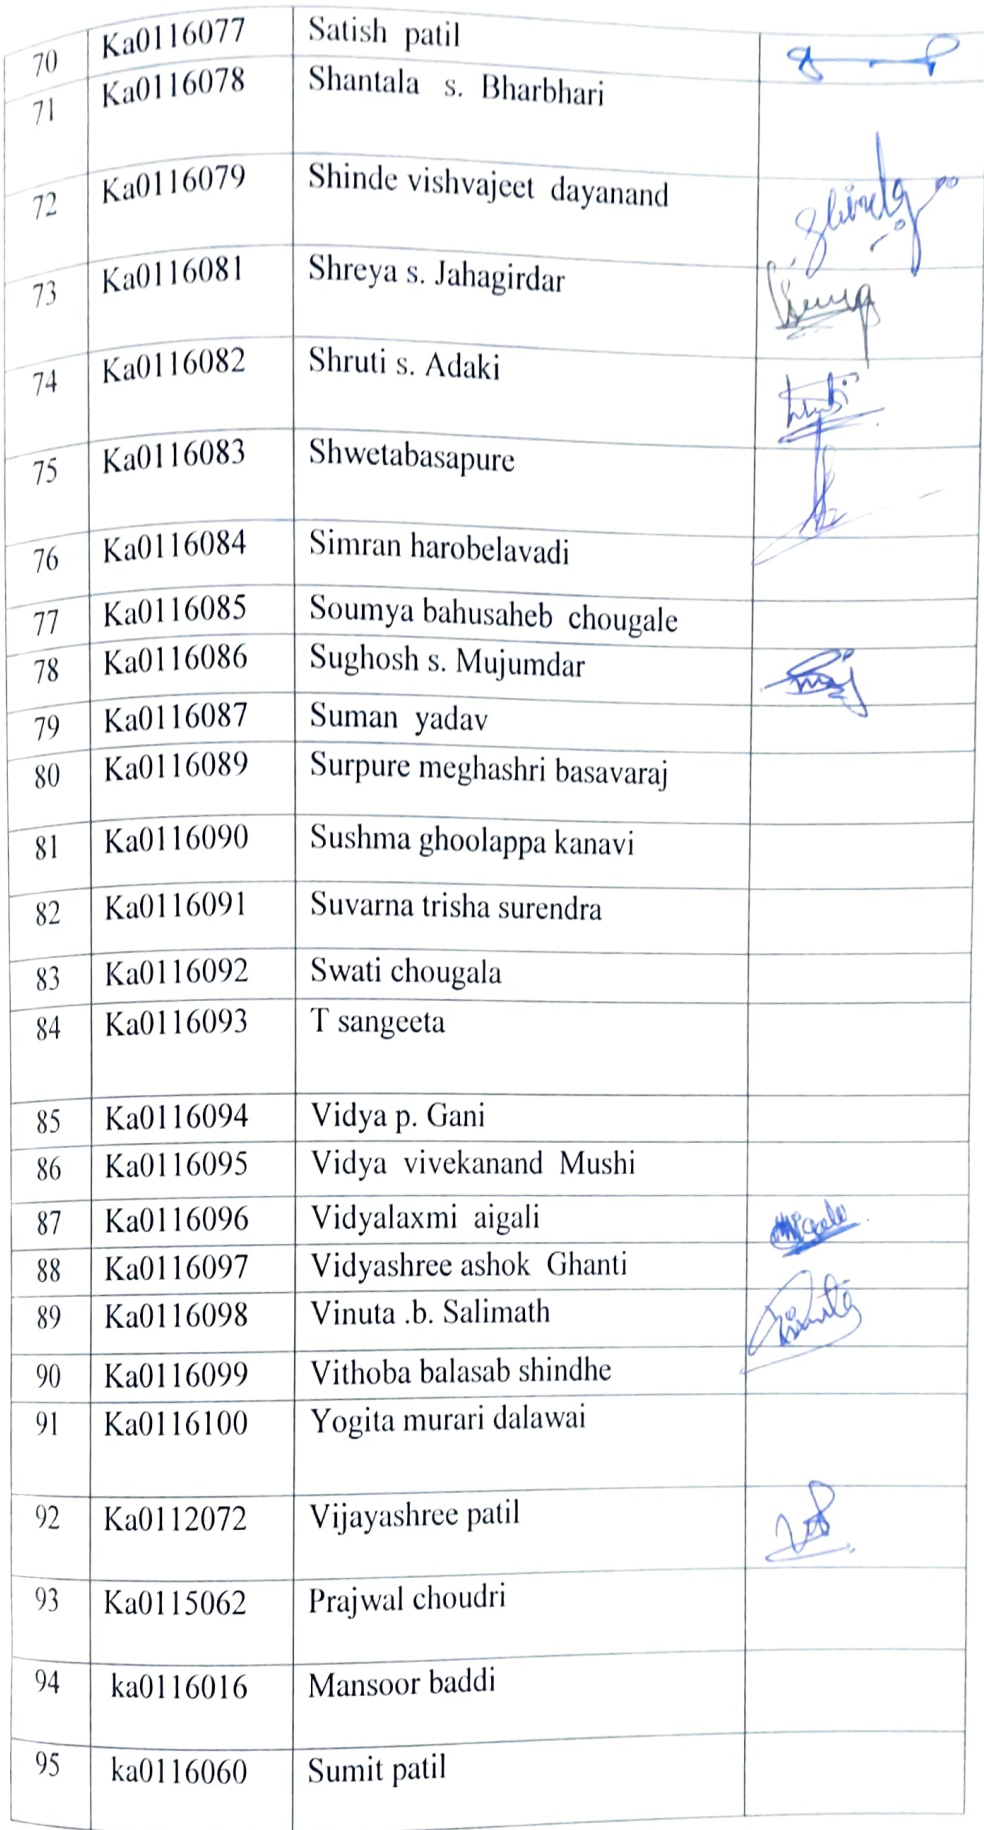 70 Ka0116077 Satish patil
71 Ka0116078 Shantala s. Bharbhari
72 Ka0116079 Shinde vishvajeet dayanand Shinde
73 Ka0116081 Shreya s. Jahagirdar
74 Ka0116082 Shruti s. Adaki
75 Ka0116083 Shwetabasapure
76 Ka0116084 Simran harobelavadi
77 Ka0116085 Soumya bahusaheb chougale
78 Ka0116086 Sughosh s. Mujumdar
79 Ka0116087 Suman yadav
80 Ka0116089 Surpure meghashri basavaraj
81 Ka0116090 Sushma ghoolappa kanavi
82 Ka0116091 Suvarna trisha surendra
83 Ka0116092 Swati chougala
84 Ka0116093 T sangeeta
85 Ka0116094 Vidya p. Gani
86 Ka0116095 Vidya vivekanand Mushi
87 Ka0116096 Vidyalaxmi aigali
88 Ka0116097 Vidyashree ashok Ghanti
89 Ka0116098 Vinuta .b. Salimath Vinuta
90 Ka0116099 Vithoba balasab shindhe
91 Ka0116100 Yogita murari dalawai
92 Ka0112072 Vijayashree patil
93 Ka0115062 Prajwal choudri
94 ka0116016 Mansoor baddi
95 ka0116060 Sumit patil